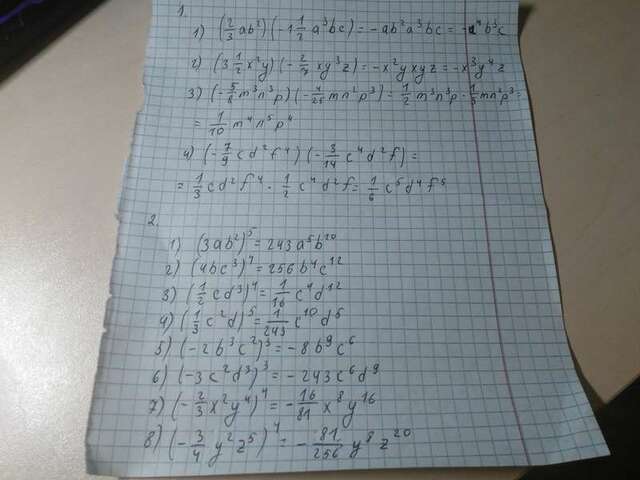 1.
1) (2/3 ab²)(-1 1/2 a³bc) = -ab²a³bc = -a⁴b³c
2) (3 1/2 x²y)(-2/7 xy³z) = -x²yxyz = -x³y⁴z
3) (-5/6 m³n³p)(-4/25 mn²p³) = 1/2 m³n³p · 1/5 mn²p³ =
= 1/10 m⁴n⁵p⁴
4) (-7/9 cd²f⁴)(-3/14 c⁴d²f) =
= 1/3 cd²f⁴ · 1/2 c⁴d²f = 1/6 c⁵d⁴f⁵
2.
1) (3ab²)⁵ = 243a⁵b²⁰
2) (4bc³)⁴ = 256b⁴c¹²
3) (1/2 cd³)⁴ = 1/16 c⁴d¹²
4) (1/3 c²d)⁵ = 1/243 c¹⁰d⁵
5) (-2b³c²)³ = -8b⁹c⁶
6) (-3c²d³)³ = -243c⁶d⁹
7) (-2/3 x²y⁴)⁴ = -16/81 x⁸y¹⁶
8) (-3/4 y²z⁵)⁴ = -81/256 y⁸z²⁰